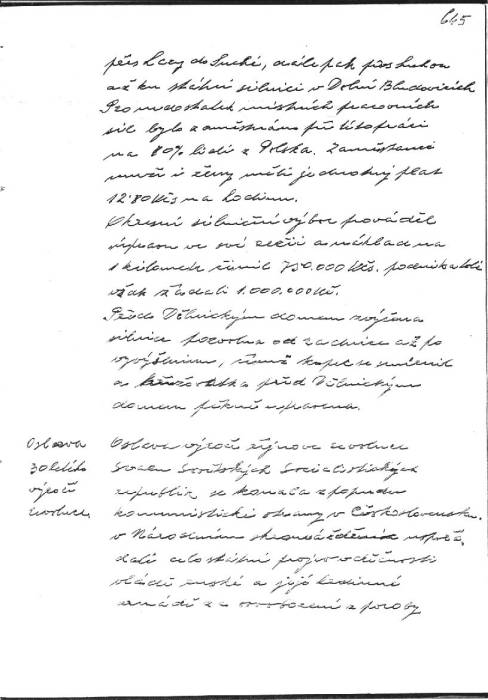 645
přes Lazy do Suché, dále pak přes
až ku státní silnici v Dolní Bludovicích
Pro nedostatek místních pracovních
sil bylo zaměstnáno při této práci
na 80% lidí z Polska. Zaměstnaní
muži i ženy měli jednotný plat
12·80 Kčs na hodinu.
Okresní silniční výbor prováděl
úpravu ve své režii a náklad na
1 kilometr činil 750.000 Kčs. podnikatelé
však žádali 1.000.000 Kč.
Před Dělnickým domem zvýšena
silnice pozvolna od zadnice až po
vyvýšeninu, čímž kopec se zmírnil
a křižovatka před Dělnickým
domem pěkně upravena.
Oslava
30 letého
výročí
revoluce.
Oslava výročí říjnové revoluce
Svazu Sovětských Socialistických
republik se konala z popudu
komunistické strany v Československu.
v Národním shromáždění uspořá-
dali celostátní projev vděčnosti
vládě ruské a její hrdinné
armádě za osvobození z poroby